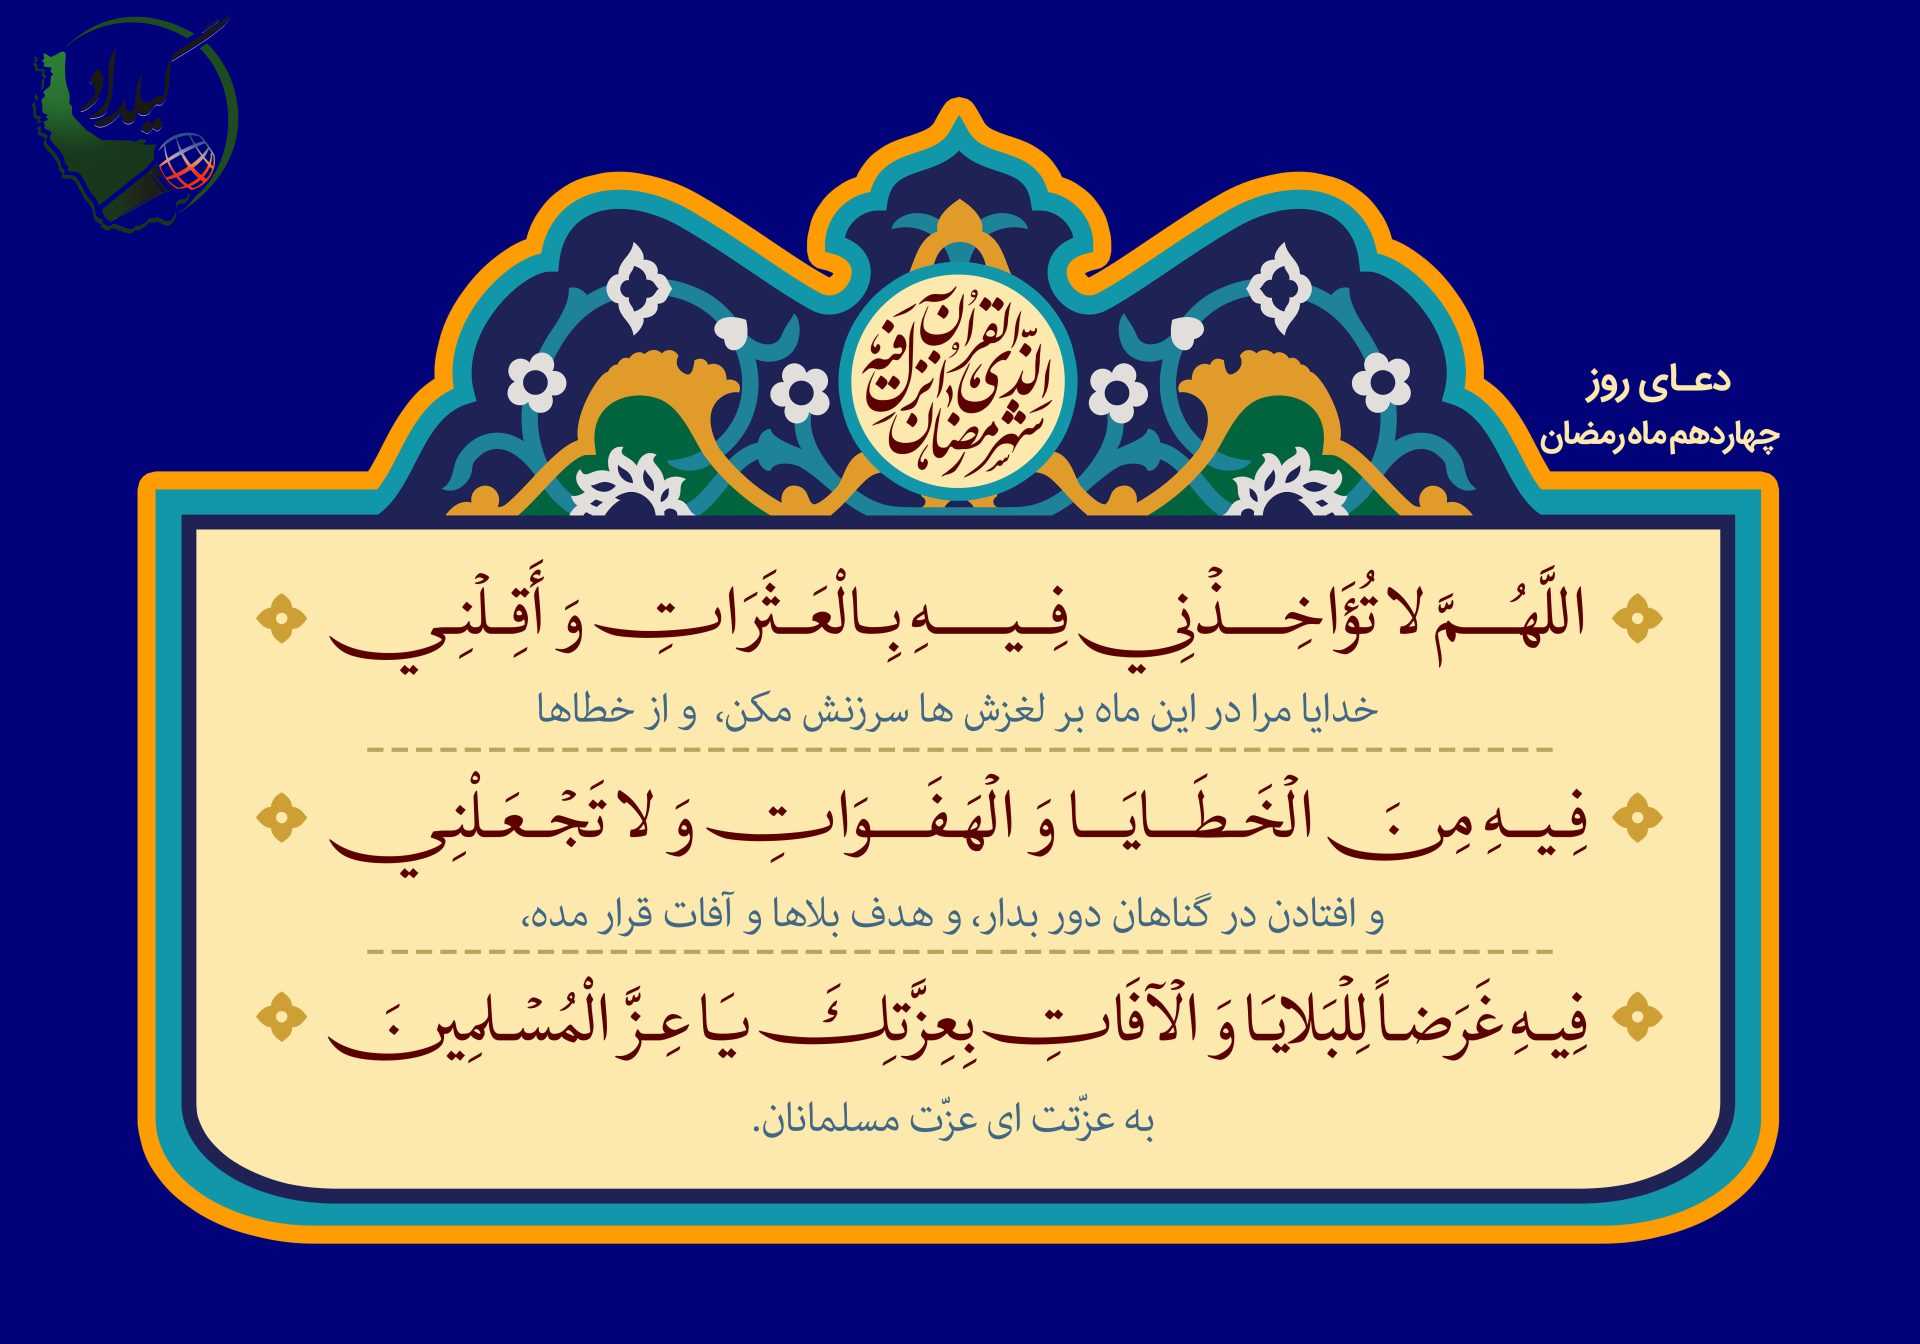 گیلداد
شهر رمضان الذی انزل فیه القرآن
دعـای روز
چهاردهم ماه رمضان
اللَّهُـمَّ لا تُؤَاخِـذْنِي فِـيـهِ بِـالْعَـثَـرَاتِ وَ أَقِـلْنِـي
خدایا مرا در این ماه بر لغزش ها سرزنش مکن، و از خطاها
فِـيـهِ مِنَ الْخَـطَـايَـا وَ الْهَـفَـوَاتِ وَ لا تَجْـعَـلْنِـي
و افتادن در گناهان دور بدار، و هدف بلاها و آفات قرار مده،
فِيـهِ غَرَضـاً لِلْبَلايَـا وَ الْآفَاتِ بِعِزَّتِكَ يَـا عِـزَّ الْمُسْـلِمِينَ
به عزّتت ای عزّت مسلمانان.